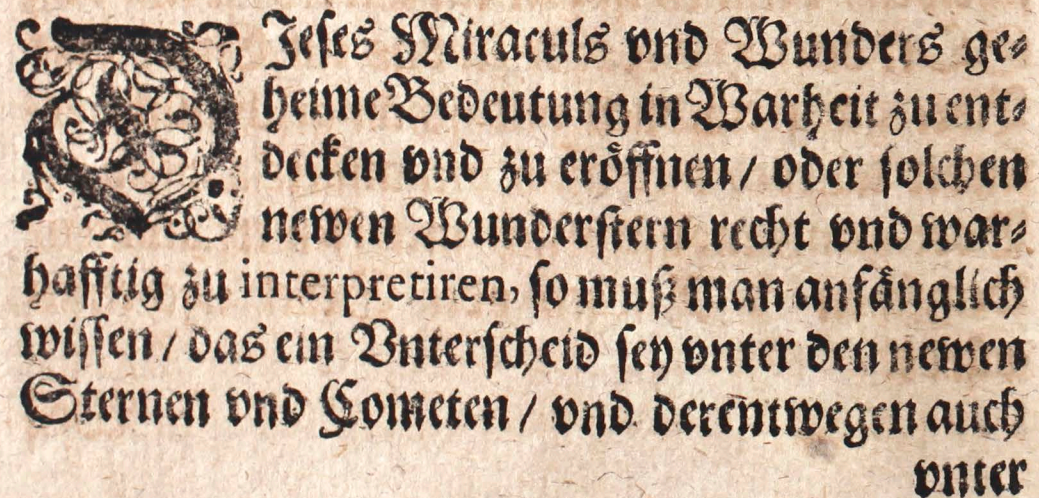 DJeses Miraculs vnd Wunders ge⸗
heime Bedeutung in Warheit zu ent⸗
decken vnd zu eröffnen / oder solchen
newen Wunderstern recht vnd war⸗
hafftig zu interpretiren, so muß man anfänglich
wissen / das ein Vnterscheid sey vnter den newen
Sternen vnd Cometen / vnd derentwegen auch
vnter